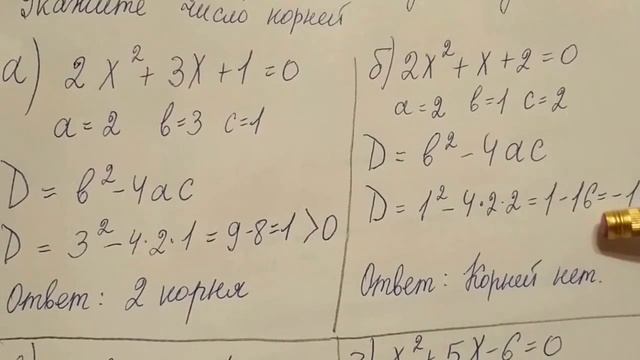 Укажите число корней
а) 2x² + 3x + 1 = 0
a = 2 b = 3 c = 1
D = b² - 4ac
D = 3² - 4·2·1 = 9 - 8 = 1 > 0
Ответ: 2 корня
б) 2x² + x + 2 = 0
a = 2 b = 1 c = 2
D = b² - 4ac
D = 1² - 4·2·2 = 1 - 16 = -1
Ответ: Корней нет.
г) x² + 5x - 6 = 0